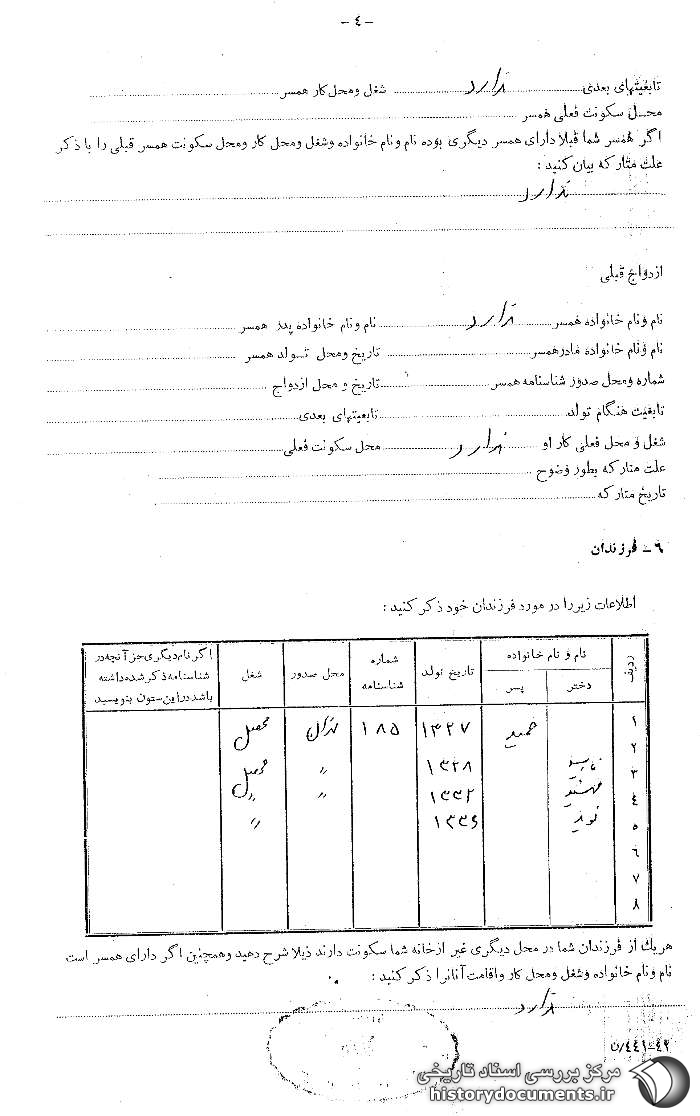 - ٤ -
تابعیتهای بعدی ندارد شغل ومحل کار همسر
محل سکونت فعلی همسر
اگر همسر شما قبلا دارای همسر دیگری بوده نام ونام خانواده وشغل ومحل کار ومحل سکونت همسر قبلی را با ذکر
علت متارکه بیان کنید :
ندارد
ازدواج قبلی
نام ونام خانواده همسر ندارد نام ونام خانواده پدر همسر
نام ونام خانواده مادرهمسر تاریخ ومحل تولد همسر
شماره ومحل صدور شناسنامه همسر تاریخ و محل ازدواج
تابعیت هنگام تولد تابعیتهای بعدی
شغل و محل فعلی کار او ندارد محل سکونت فعلی
علت متارکه بطور وضوح
تاریخ متارکه
٦- فرزندان
اطلاعات زیررا در مورد فرزندان خود ذکر کنید :
ردیف نام و نام خانواده دختر پسر تاریخ تولد شماره شناسنامه محل صدور شغل اگر نام دیگری جز آنچه در شناسنامه ذکر شده داشته باشد در این ستون بنویسید
۱ حمید ۱۳۲۷ ۱۸۵ تهران محصل
۲
۳ ناهید ۱۳۲۸ " محصل
٤ مهشید ۱۳۳۲ " "
۵ ۱۳۳۶ "
٦
۷
۸
هریك از فرزندان شما در محل دیگری غیر ازخانه شما سکونت دارند ذیلا شرح دهید وهمچنین اگر دارای همسر است
نام ونام خانواده وشغل ومحل کار واقامت آنانرا ذکر کنید :
ندارد
٤۲-٤٤۱/ن
مرکز بررسی اسناد تاریخی
historydocuments.ir